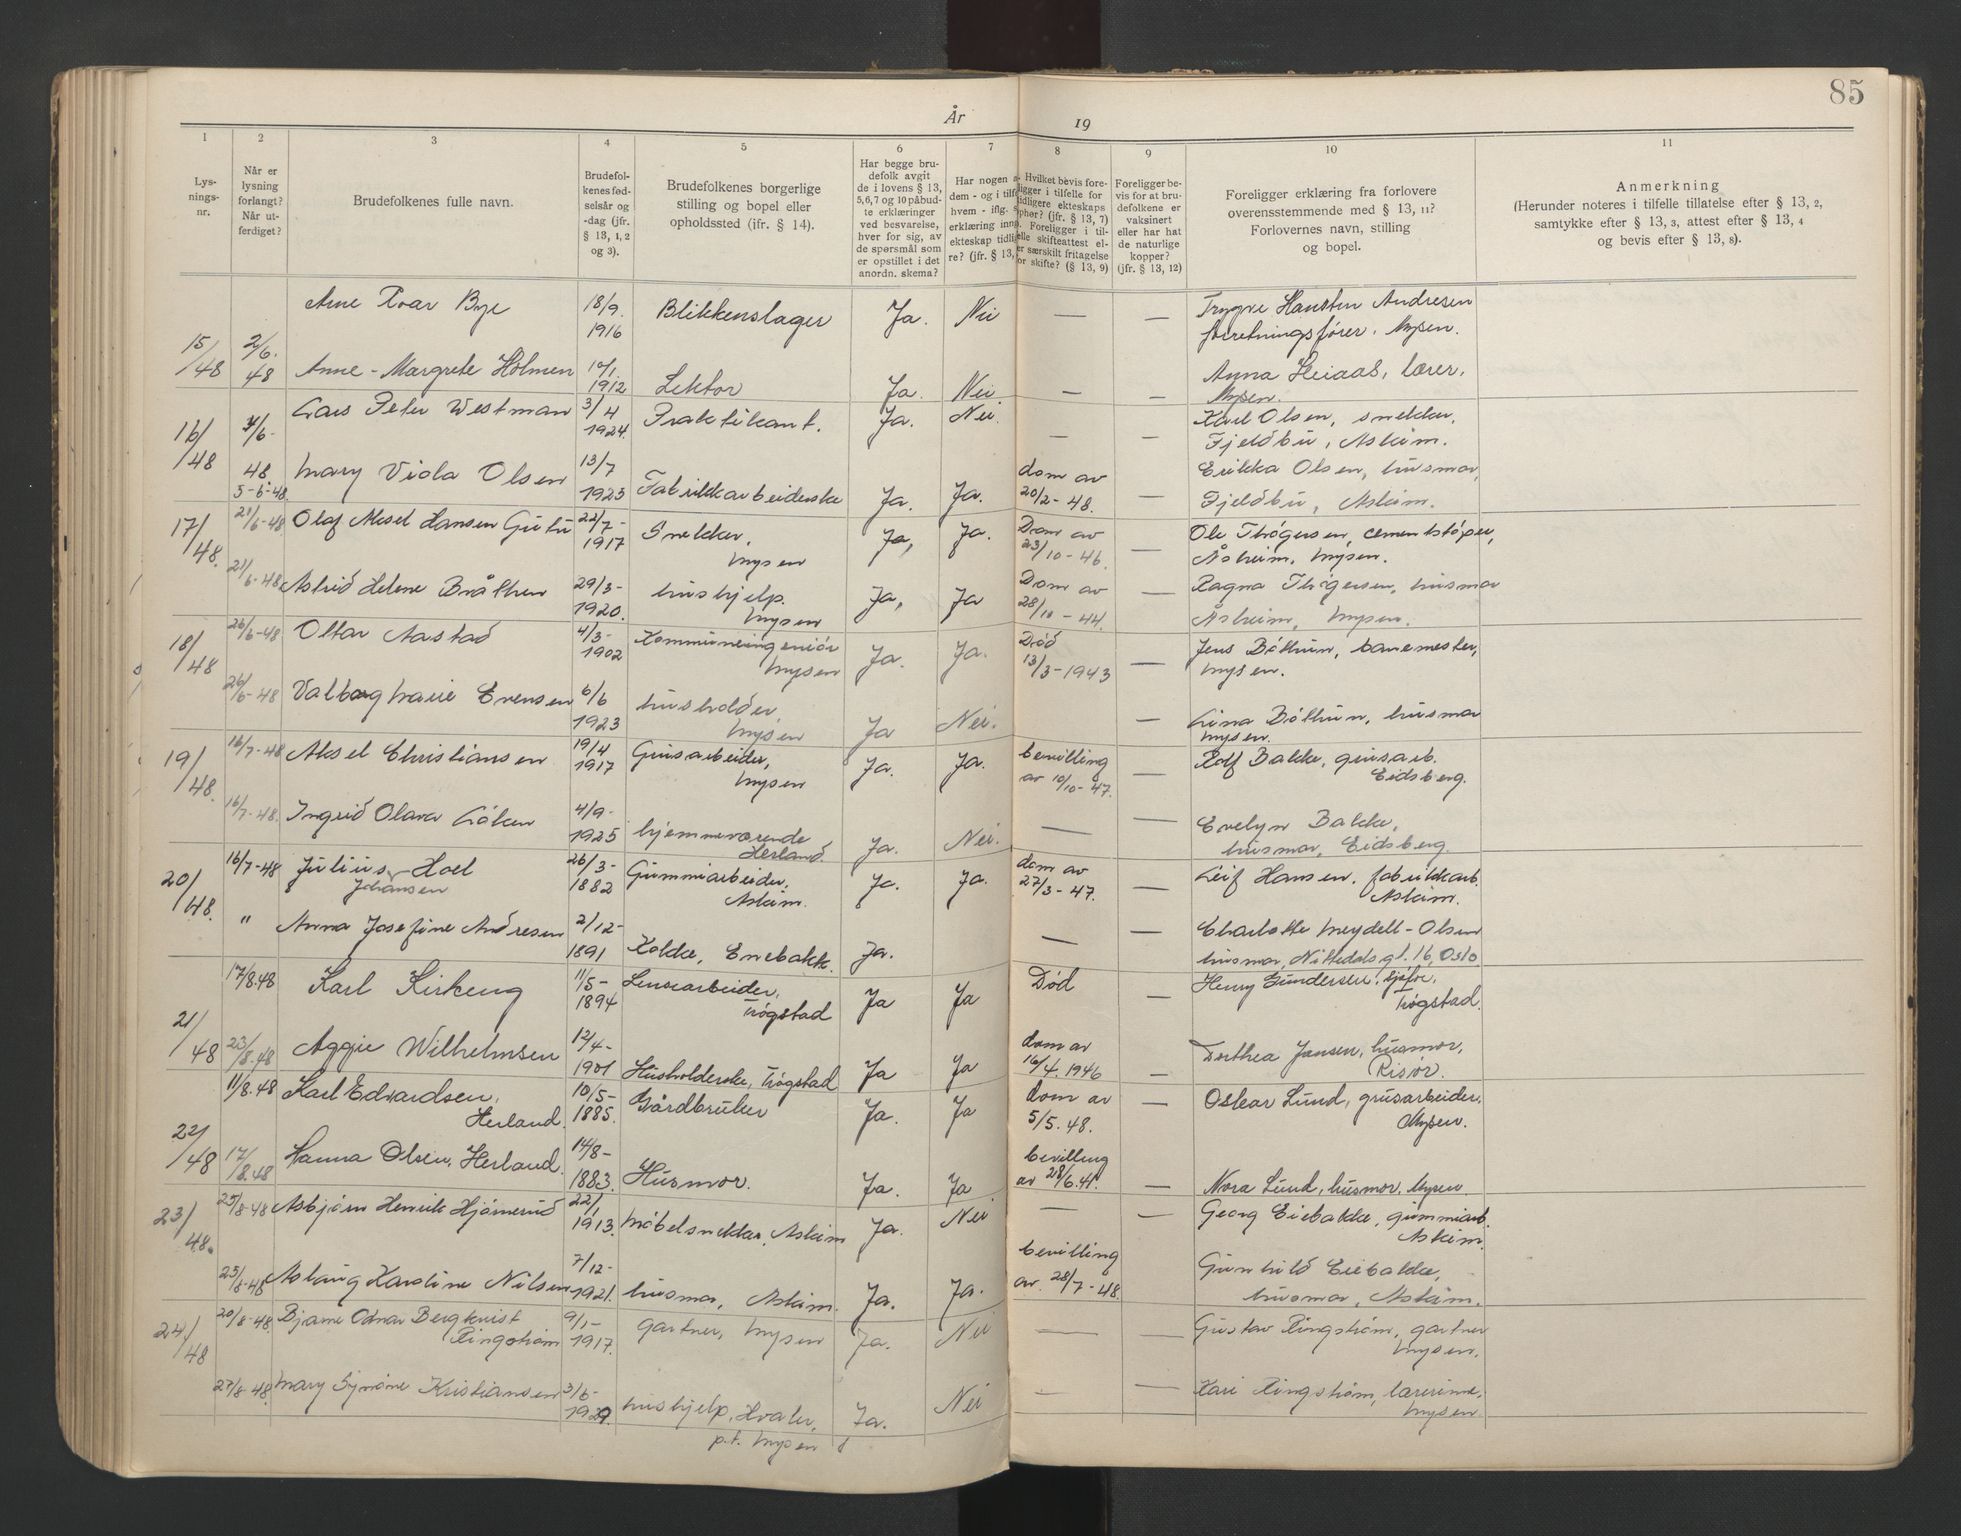 85
År 19
1 2 3 4 5 6 7 8 9 10 11
Lys-
nings-
nr.
Når er
lysning
forlangt?
Når ut-
ferdiget?
Brudefolkenes fulle navn.
Brudefol-
kenes fød-
selsår og
-dag (jfr.
§ 13, 1, 2
og 3).
Brudefolkenes borgerlige
stilling og bopel eller
opholdssted (ifr. § 14).
Har begge bru-
defolk avgit
de i lovens § 13,
5,6,7 og 10 påbud-
te erklæringer
ved besvarelse,
hver for sig, av
de spørsmål som
er opstillet i det
anordn. skema?
Har nogen a
dem - og i tilfe
hvem - iflg. §
erklæring inng
ekteskap tidlig
re? (jfr. § 13,
Hvilket bevis fore-
ligger i tilfelle for
tidligere ekteskaps
ophør? (jfr. § 13, 7)
Foreligger i til-
elle skifteattest el-
er særskilt fritagelse
or skifte? (§ 13, 9)
Foreligger be-
vis for at bru-
defolkene er
vaksinert
eller har hat
de naturlige
kopper?
(jfr. § 13, 12)
Foreligger erklæring fra forlovere
overensstemmende med § 13, 11?
Forlovernes navn, stilling
og bopel.
Anmerkning
(Herunder noteres i tilfelle tillatelse efter § 13, 2,
samtykke efter § 13, 3, attest efter § 13, 4
og bevis efter § 13, 8).
15/48 2/6. 48 Arne Roar Bye 18/9. 1916 Blikkenslager Ja. Nei — — Trygve Hansten Andresen
forretningsfører. Mysen.
Anne-Margrete Holmen 10/1. 1912 Lektor Ja. Nei. — — Anna Heiaas, lærer,
Mysen.
16/48 4/6- 48 Lars Peter Westman 3/4 1924. Praktikant. Ja. Nei. — — Karl Olsen, snekker,
Fjeldbu, Askim.
5-6-48. Mary Viola Olsen 13/7 1923 Fabrikkarbeiderske Ja. Ja. dom av 20/2-48. — Erikka Olsen, husmor,
Fjeldbu, Askim.
17/48. 21/6-48 Olaf Aksel Hansen Gutu 22/7- 1917 Snekker, Mysen Ja, Ja. Dom av 23/10-46. — Ole Thøgersen, cementstøper,
Åsheim, Mysen.
21/6-48 Astrid Helene Bråthen 29/3- 1920. hushjelp. Mysen Ja, Ja Dom av 28/10-44. — Ragna Thøgersen, husmor
Åsheim, Mysen.
18/48 26/6-48 Ottar Aastad 4/3- 1902 Kommuneingeniør Mysen Ja. Ja. Død 13/3-1943 — Jens Bøthun, banemester,
Mysen.
26/6-48 Valborg Marie Evensen 6/6 1923 husholder, Mysen Ja Nei. — Lina Bøthun, husmor
Mysen.
19/48. 16/7-48 Aksel Christiansen 19/4 1917 Grusarbeider, Mysen Ja. Ja. bevilling av 10/10-47. — Rolf Bakke, grusarb.
Eidsberg.
16/7-48. Ingrid Olava Løken 4/9- 1925 hjemmeværende Herland Ja. Nei. — — Evelyn Bakke,
husmor, Eidsberg.
20/48. 16/7-48 Julius Johansen Hoel 26/3- 1882 Gummiarbeider, Askim. Ja. Ja. dom av 27/3-47. — Leif Hansen, fabrikkarb.
Askim.
" Anna Josefine Andresen 2/12- 1891 Kokke, Enebakk. Ja. — — Charlotte Meydell-Olsen
husmor, Nittedalsgt. 16, Oslo
21/48 17/8.48 Karl Kirkeng 11/5- 1894 Lensearbeider, Trøgstad Ja Ja Død — Henry Gundersen, sjåfør,
Trøgstad.
23/8.48 Aggie Wilhelmsen 12/4- 1901 Husholderske, Trøgstad Ja Ja dom av 16/4. 1946 — Dorthea Jansen, husmor,
Risør.
22/48 11/8.48 Karl Edvardsen, Herland. 10/5- 1885. Gårdbruker Ja. Ja dom av 5/5.48. — Oskar Lund, grusarbeider,
Mysen.
17/8.48 Hanna Olsen, Herland. 14/8- 1883. Husmor. Ja. Ja bevilling av 28/6.41. — Nora Lund, husmor, Mysen.
23/48. 25/8-48 Asbjørn Henrik Hjørnerud 22/1 1913. Møbelsnekker, Askim Ja. Nei — — Georg Eiebakke, gummiarb.
Askim.
25/8-48 Aslaug Karoline Nilsen 7/12- 1921. husmor, Askim. Ja. Ja. bevilling av 28/7-48. Gunhild Eiebakke,
husmor, Askim.
24/48 20/8-48. Bjarne Odvar Bergkvist Ringstrøm 9/1- 1917. gartner, Mysen Ja. Nei — — Gustav Ringstrøm, gartner
Mysen.
27/8-48. Mary Synøve Kristiansen 3/6- 1929. hushjelp, Hvaler, p.t. Mysen Ja. Nei — — Kari Ringstrøm, lærerinne,
Mysen.